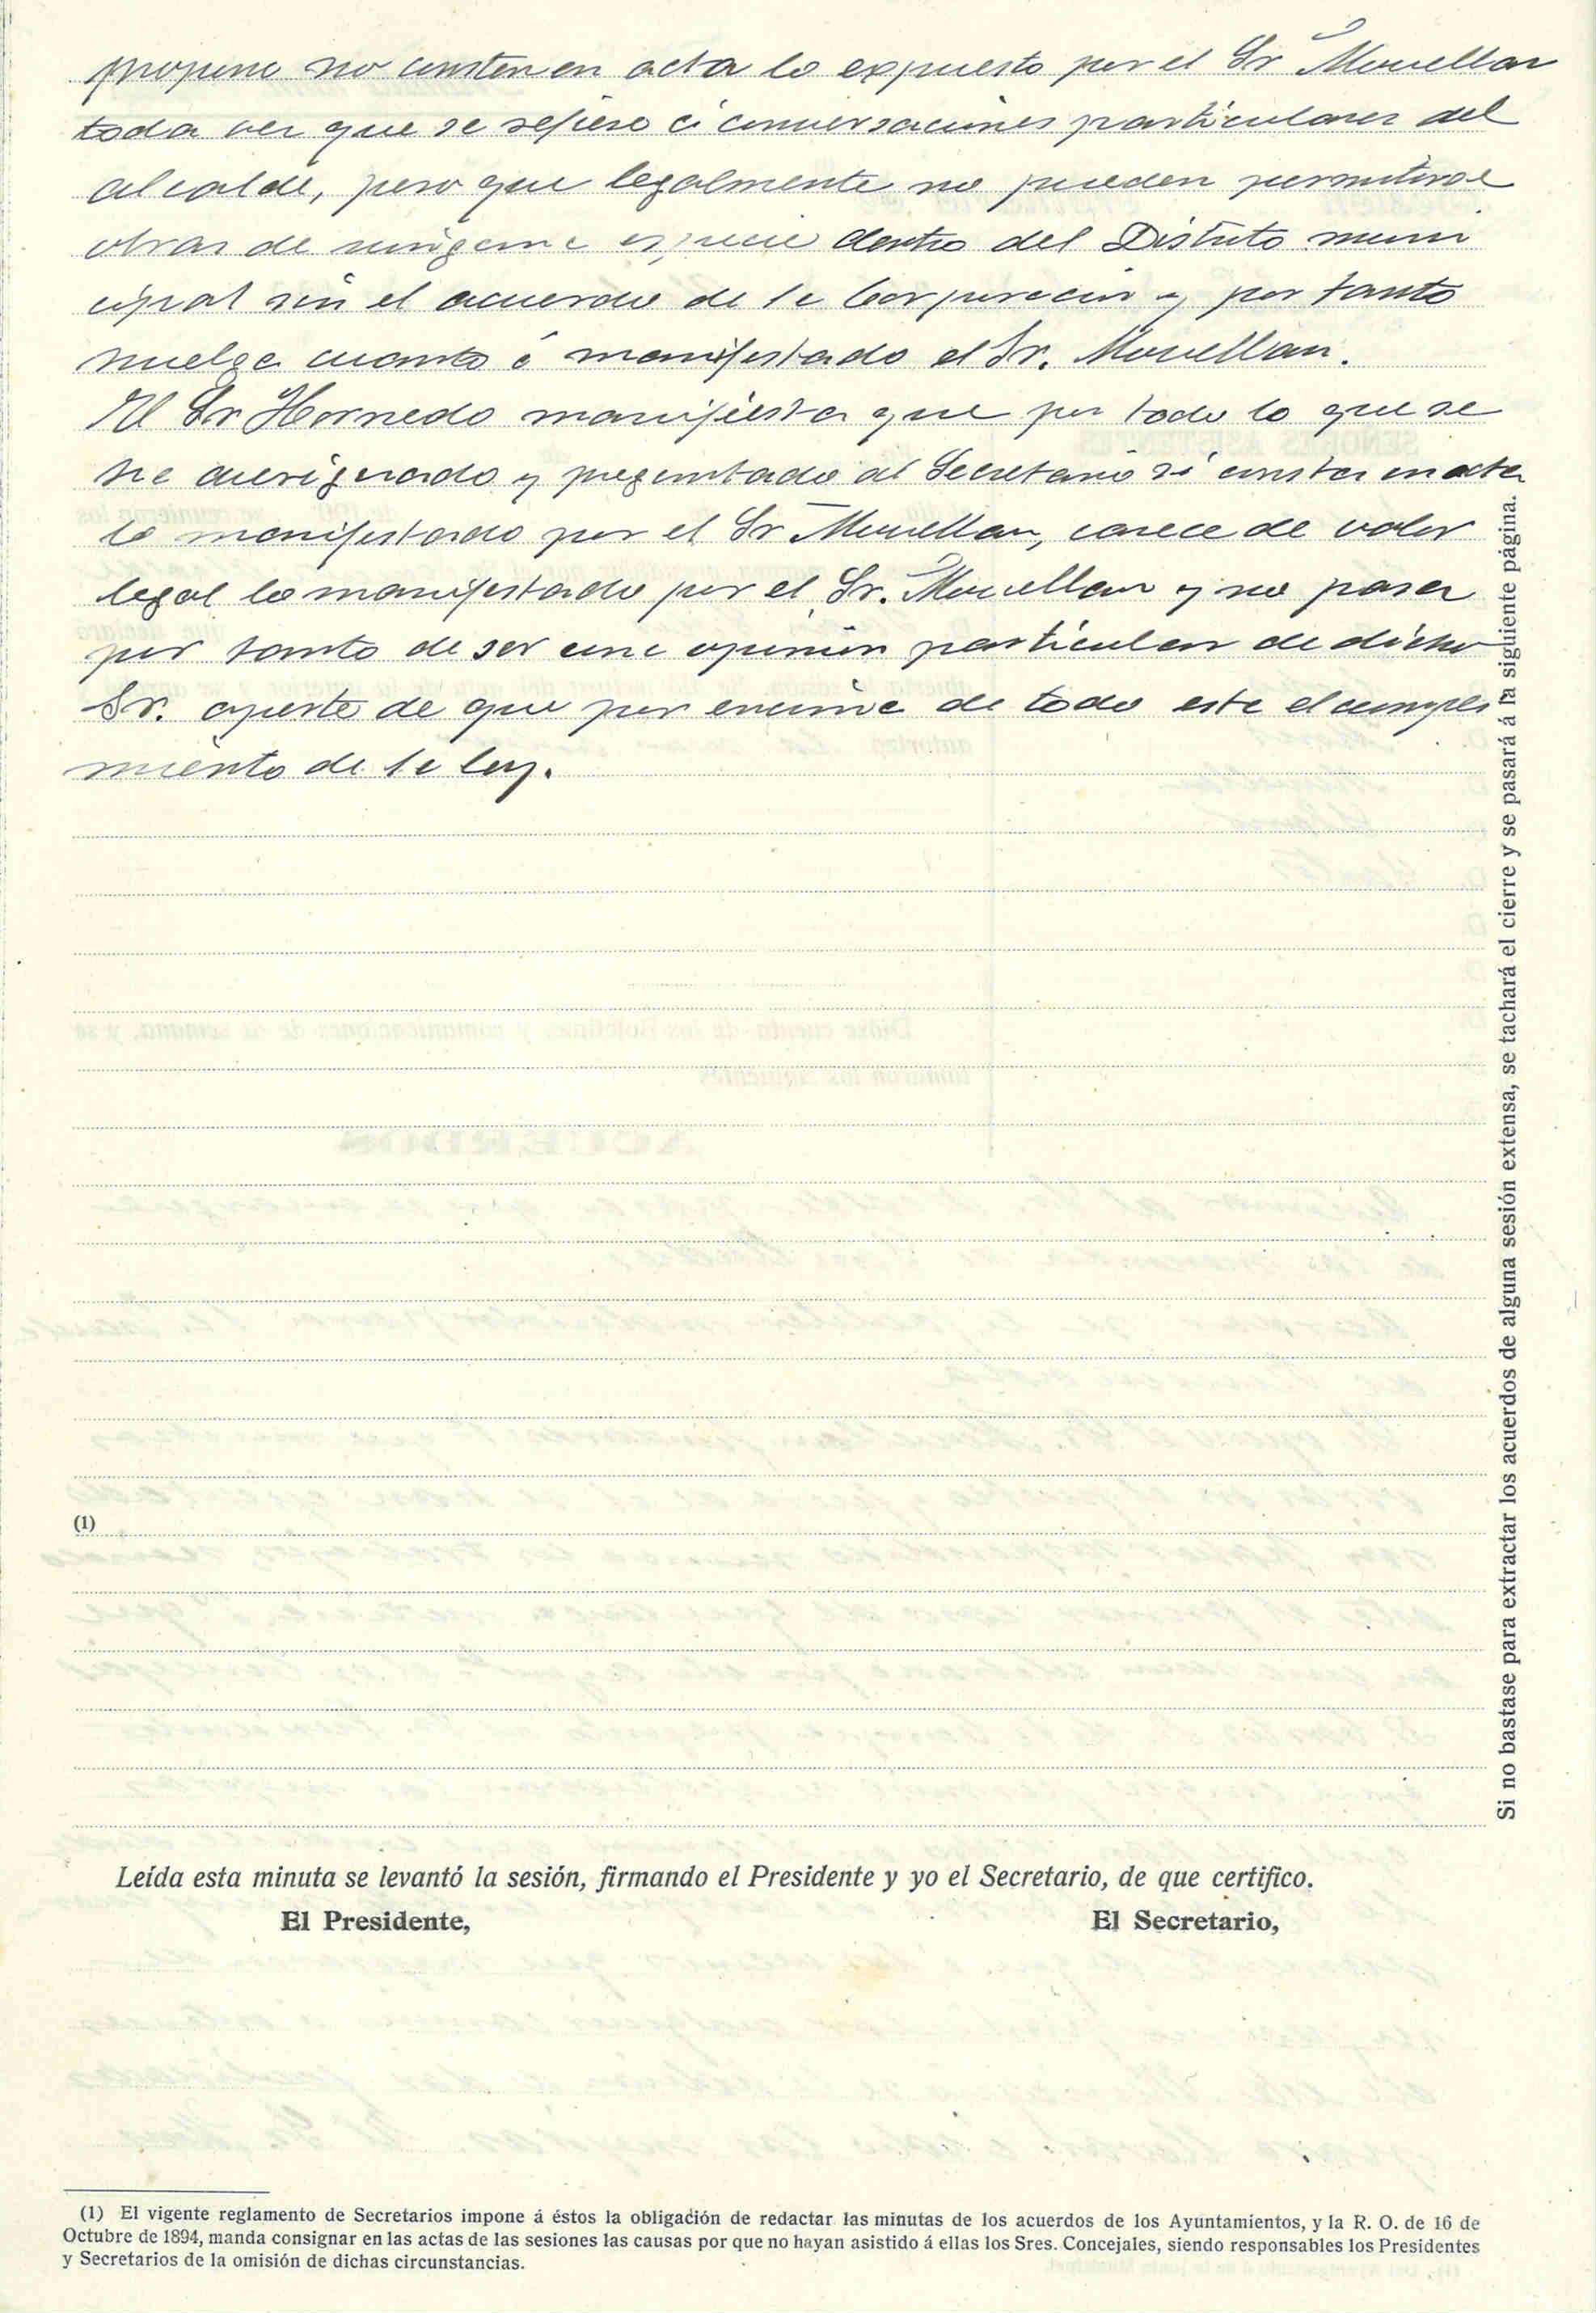 propone no consten en acta lo expuesto por el Sr Mouellan
toda vez que se refiere á conversaciones particulares del
alcalde, pero que legalmente no pueden permitirse
obras de ninguna especie dentro del Distrito muni
cipal sin el acuerdo de la Corporacion y por tanto
huelga cuanto á manifestado el Sr. Mouellan.
El Sr Hornedo manifiesta que por todo lo que se
ha averiguado y preguntado al Secretario si constar en acta
lo manifestado por el Sr Mouellan, carece de valor
legal lo manifestado por el Sr. Mouellan y no pasa
por tanto de ser una opinión particular de dicho
Sr. aparte de que por encima de todo esta el cumpli
miento de la ley.
(1)
Leída esta minuta se levantó la sesión, firmando el Presidente y yo el Secretario, de que certifico.
El Presidente, El Secretario,
(1) El vigente reglamento de Secretarios impone á éstos la obligación de redactar las minutas de los acuerdos de los Ayuntamientos, y la R. O. de 16 de
Octubre de 1894, manda consignar en las actas de las sesiones las causas por que no hayan asistido á ellas los Sres. Concejales, siendo responsables los Presidentes
y Secretarios de la omisión de dichas circunstancias.
Si no bastase para extractar los acuerdos de alguna sesión extensa, se tachará el cierre y se pasará á la siguiente página.